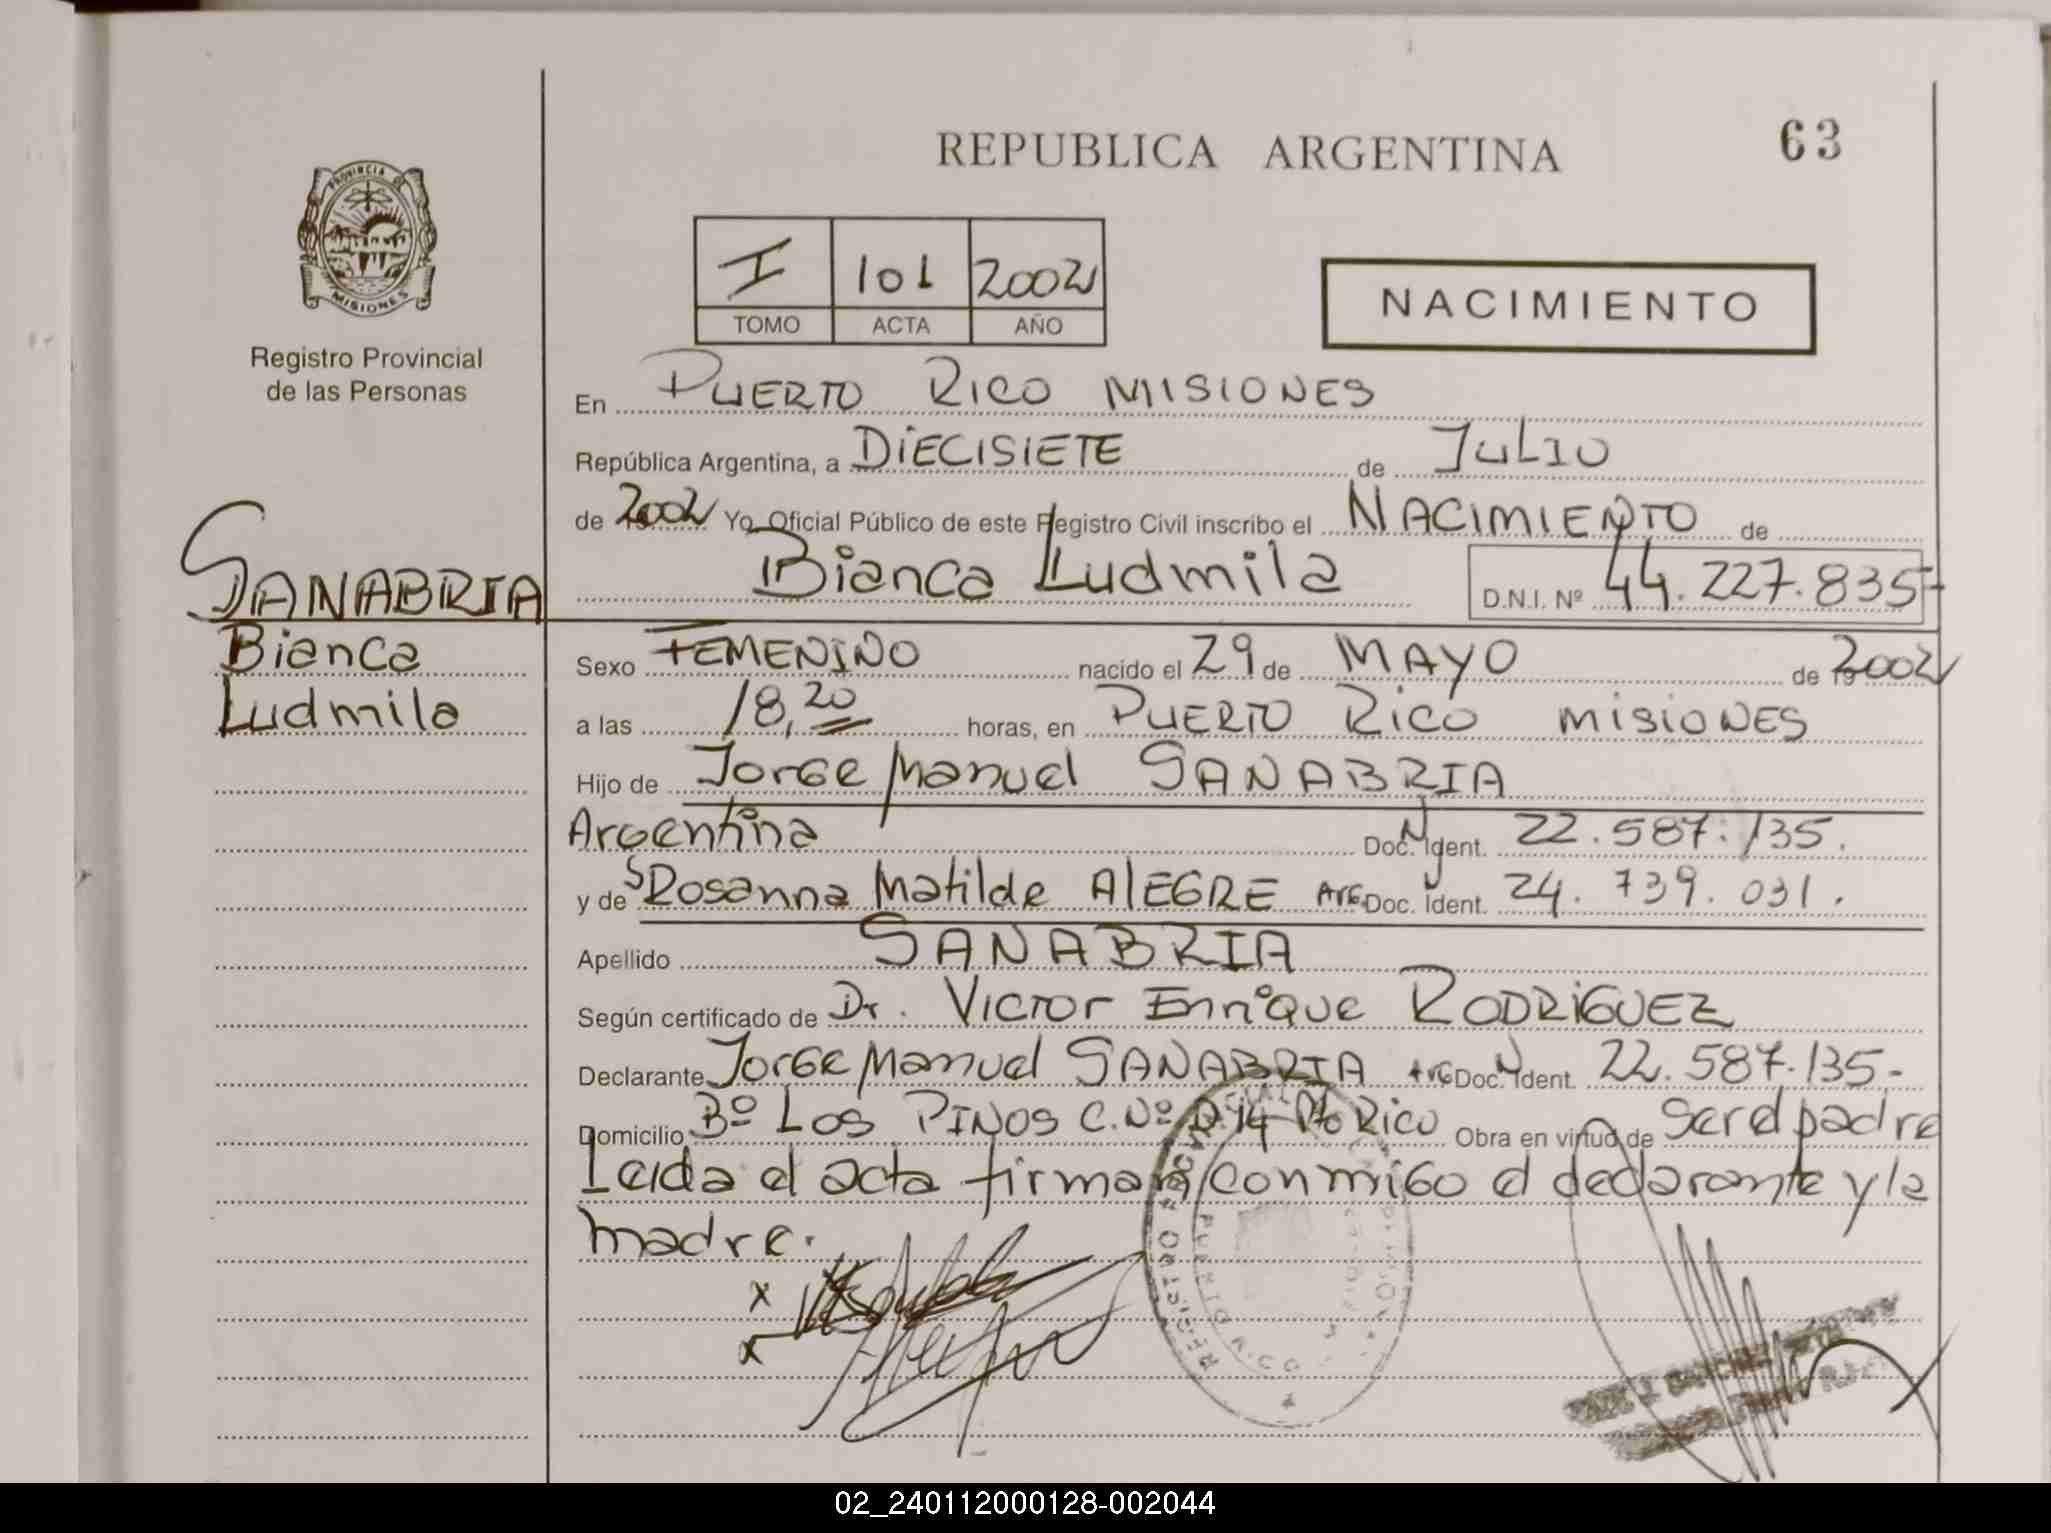 REPUBLICA ARGENTINA
63
PROVINCIA DE
MISIONES
Registro Provincial
de las Personas
I 101 2002
TOMO ACTA AÑO
NACIMIENTO
En PUERTO RICO MISIONES
República Argentina, a DIECISIETE de JULIO
de 2002 Yo, Oficial Público de este Registro Civil inscribo el NACIMIENTO de
Bianca Ludmila D.N.I. Nº 44.227.835-
SANABRIA
Bianca
Ludmila
Sexo FEMENINO nacido el 29 de MAYO de 2002
a las 18,20 horas, en PUERTO RICO MISIONES
Hijo de Jorge Manuel SANABRIA
Argentina Doc. N Ident. 22.587.135.
y de Rosanna Matilde ALEGRE Arg. Doc. Ident. 24.739.031.
Apellido SANABRIA
Según certificado de Dr. Victor Enrique RODRIGUEZ
Declarante Jorge Manuel SANABRIA Arg Doc. N Ident. 22.587.135-
Domicilio Bº LOS PINOS C.Nº D.14 Pto Rico Obra en virtud de ser el padre
Leida el acta firman conmigo el declarante y la
madre.
x
x
02_240112000128-002044